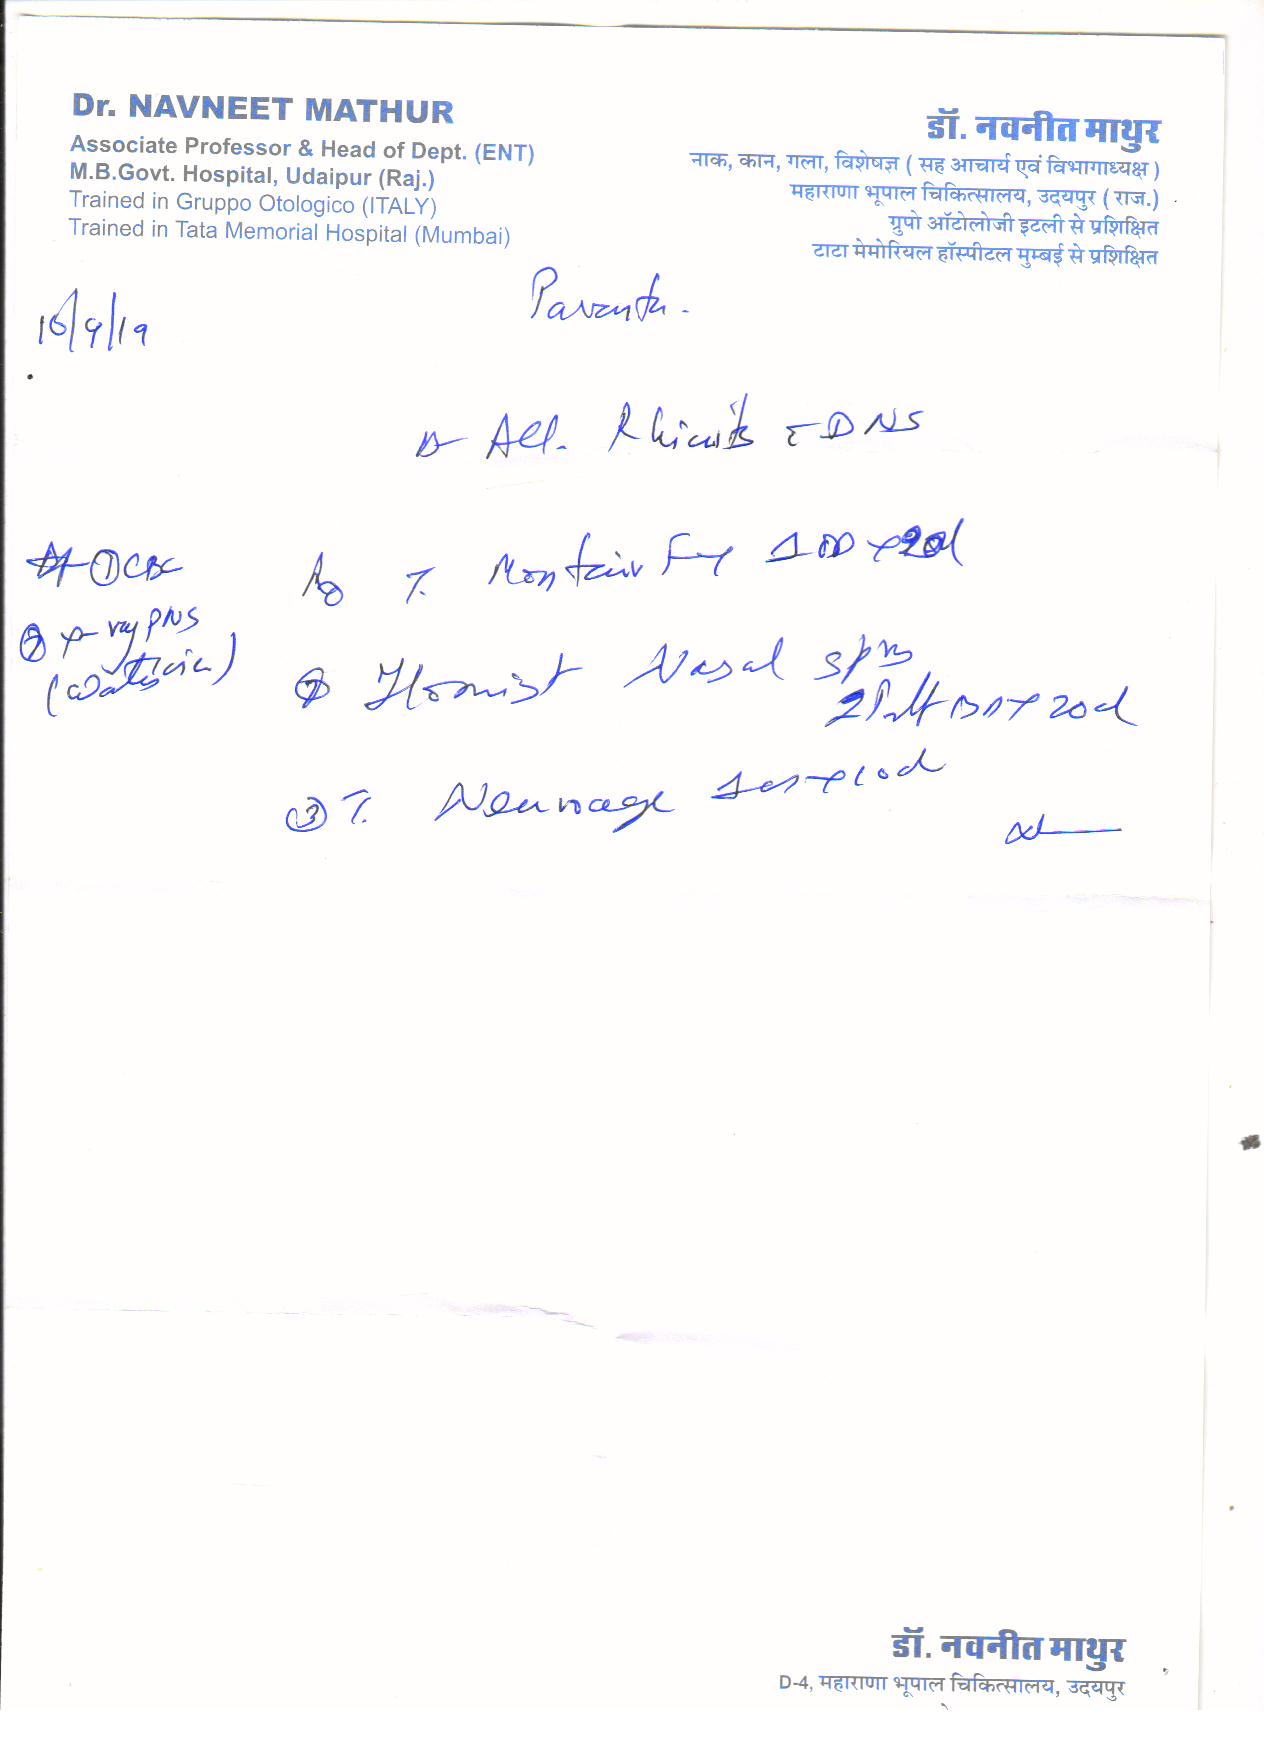 Dr. NAVNEET MATHUR
Associate Professor & Head of Dept. (ENT)
M.B.Govt. Hospital, Udaipur (Raj.)
Trained in Gruppo Otologico (ITALY)
Trained in Tata Memorial Hospital (Mumbai)
डॉ. नवनीत माथुर
नाक, कान, गला, विशेषज्ञ ( सह आचार्य एवं विभागाध्यक्ष )
महाराणा भूपाल चिकित्सालय, उदयपुर ( राज.)
ग्रुपो ऑटोलोजी इटली से प्रशिक्षित
टाटा मेमोरियल हॉस्पीटल मुम्बई से प्रशिक्षित
16/9/19
All. Rhinitis DNS
① CBC
② X-ray PNS
(Water's view)
T. Montair Fx 1 OD x 20d
② Flomist Nasal spray
2 Puff BD x 20d
③ T. x 10d
डॉ. नवनीत माथुर
D-4, महाराणा भूपाल चिकित्सालय, उदयपुर